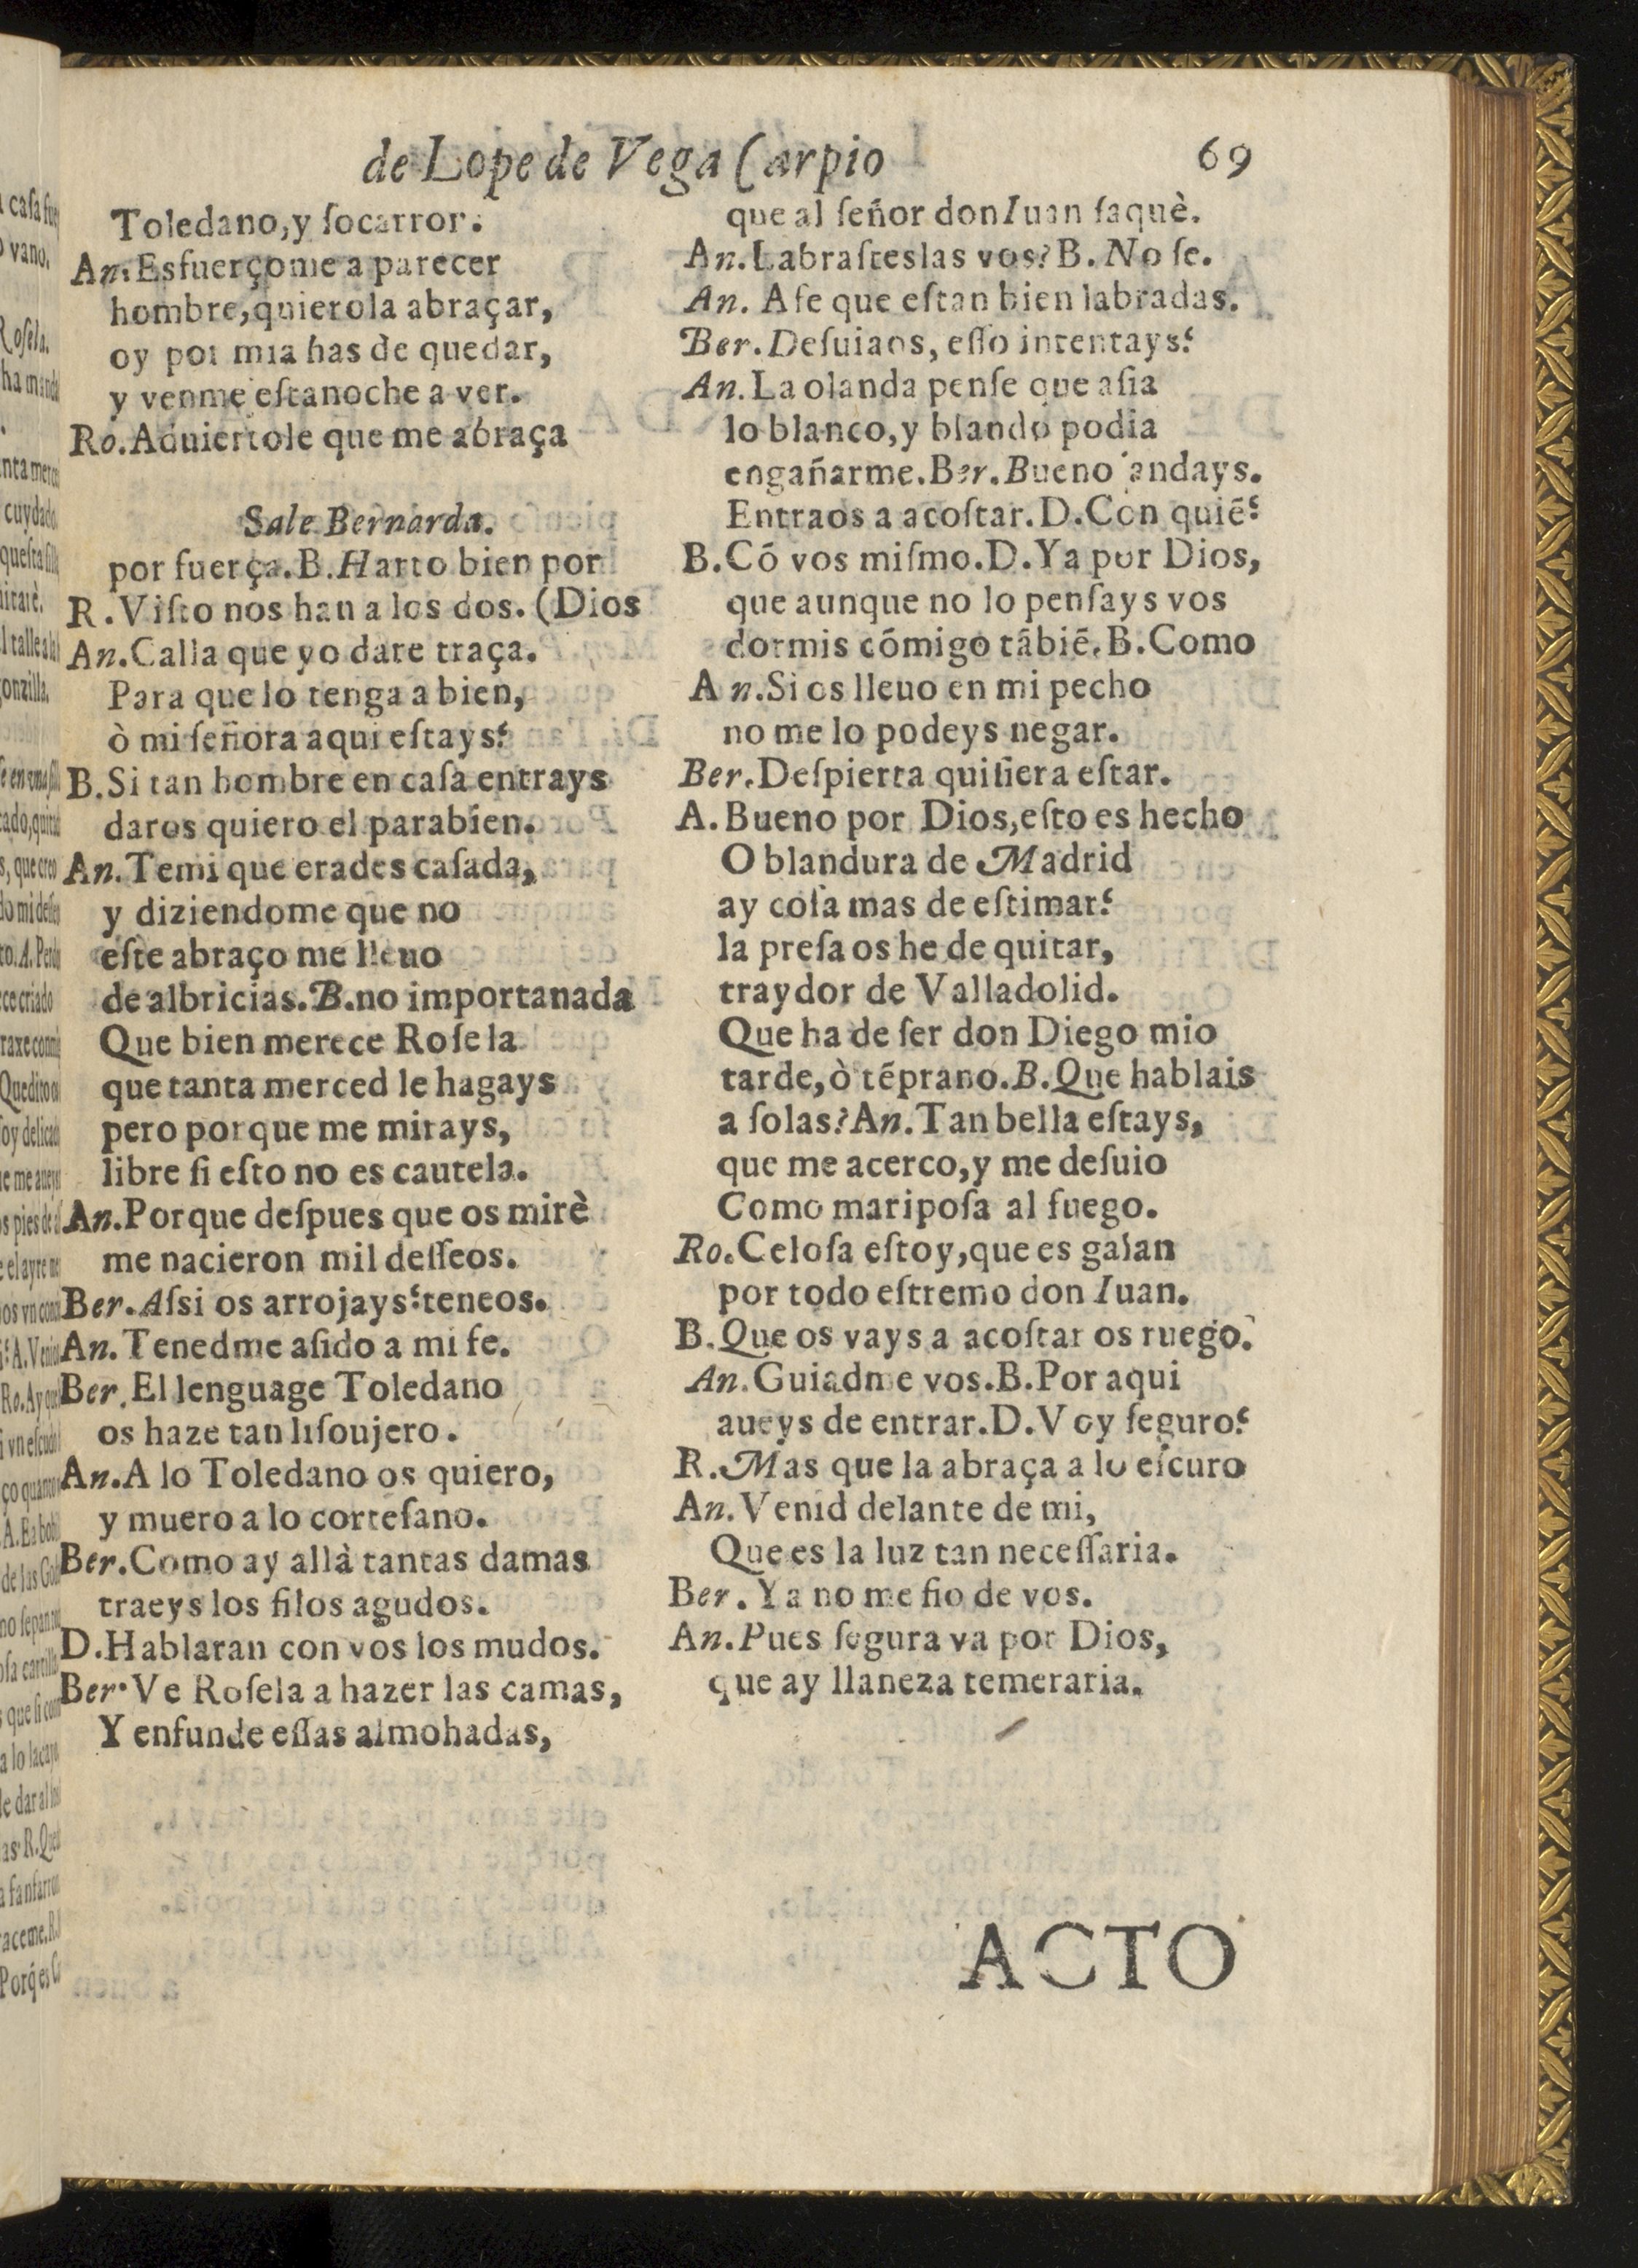 de Lope de Vega Carpio 69
Toledano,y ſocarror.
An.Esfuerçome a parecer
hombre,quierola abraçar,
oy por mia has de quedar,
y venme eſtanoche a ver.
Ro.Aduiertole que me abraça
Sale Bernarda.
por fuerça.B.Harto bien por
R.Viſto nos han a los dos. (Dios
An.Calla que yo dare traça.
Para que lo tenga a bien,
ò mi ſeñora aqui eſtays?
B.Si tan hombre en caſa entrays
daros quiero el parabien.
An.Temi que erades caſada,
y diziendome que no
eſte abraço me lleuo
de albricias.B.no importanada
Que bien merece Roſela
que tanta merced le hagays
pero porque me mirays,
libre ſi eſto no es cautela.
An.Porque deſpues que os mirè
me nacieron mil deſſeos.
Ber.Aſsi os arrojays?teneos.
An.Tenedme aſido a mi fe.
Ber.El lenguage Toledano
os haze tan liſoujero.
An.A lo Toledano os quiero,
y muero a lo corteſano.
Ber.Como ay allà tantas damas
traeys los filos agudos.
D.Hablaran con vos los mudos.
Ber.Ve Roſela a hazer las camas,
Y enfunde eſſas almohadas,
que al ſeñor don Iuan ſaquè.
An.Labraſteslas vos?B.No ſe.
An. Afe que eſtan bien labradas.
Ber.Deſuiaos, eſſo intentays?
An.La olanda penſe que aſia
lo blanco,y blando podia
engañarme.Ber.Bueno andays.
Entraos a acoſtar.D.Con quiē?
B.Có vos miſmo.D.Ya por Dios,
que aunque no lo penſays vos
dormis cómigo tābiē.B.Como
An.Si os lleuo en mi pecho
no me lo podeys negar.
Ber.Deſpierta quiſiera eſtar.
A.Bueno por Dios,eſto es hecho
O blandura de Madrid
ay coſa mas de eſtimar?
la preſa os he de quitar,
traydor de Valladolid.
Que ha de ſer don Diego mio
tarde,ò tēprano.B.Que hablais
a ſolas?An.Tan bella eſtays,
que me acerco,y me deſuio
Como maripoſa al fuego.
Ro.Celoſa eſtoy,que es galan
por todo eſtremo don Iuan.
B.Que os vays a acoſtar os ruego.
An.Guiadme vos.B.Por aqui
aueys de entrar.D.Voy ſeguro?
R.Mas que la abraça a lo eſcuro
An.Venid delante de mi,
Que es la luz tan neceſſaria.
Ber.Ya no me fio de vos.
An.Pues ſegura va por Dios,
que ay llaneza temeraria.
ACTO